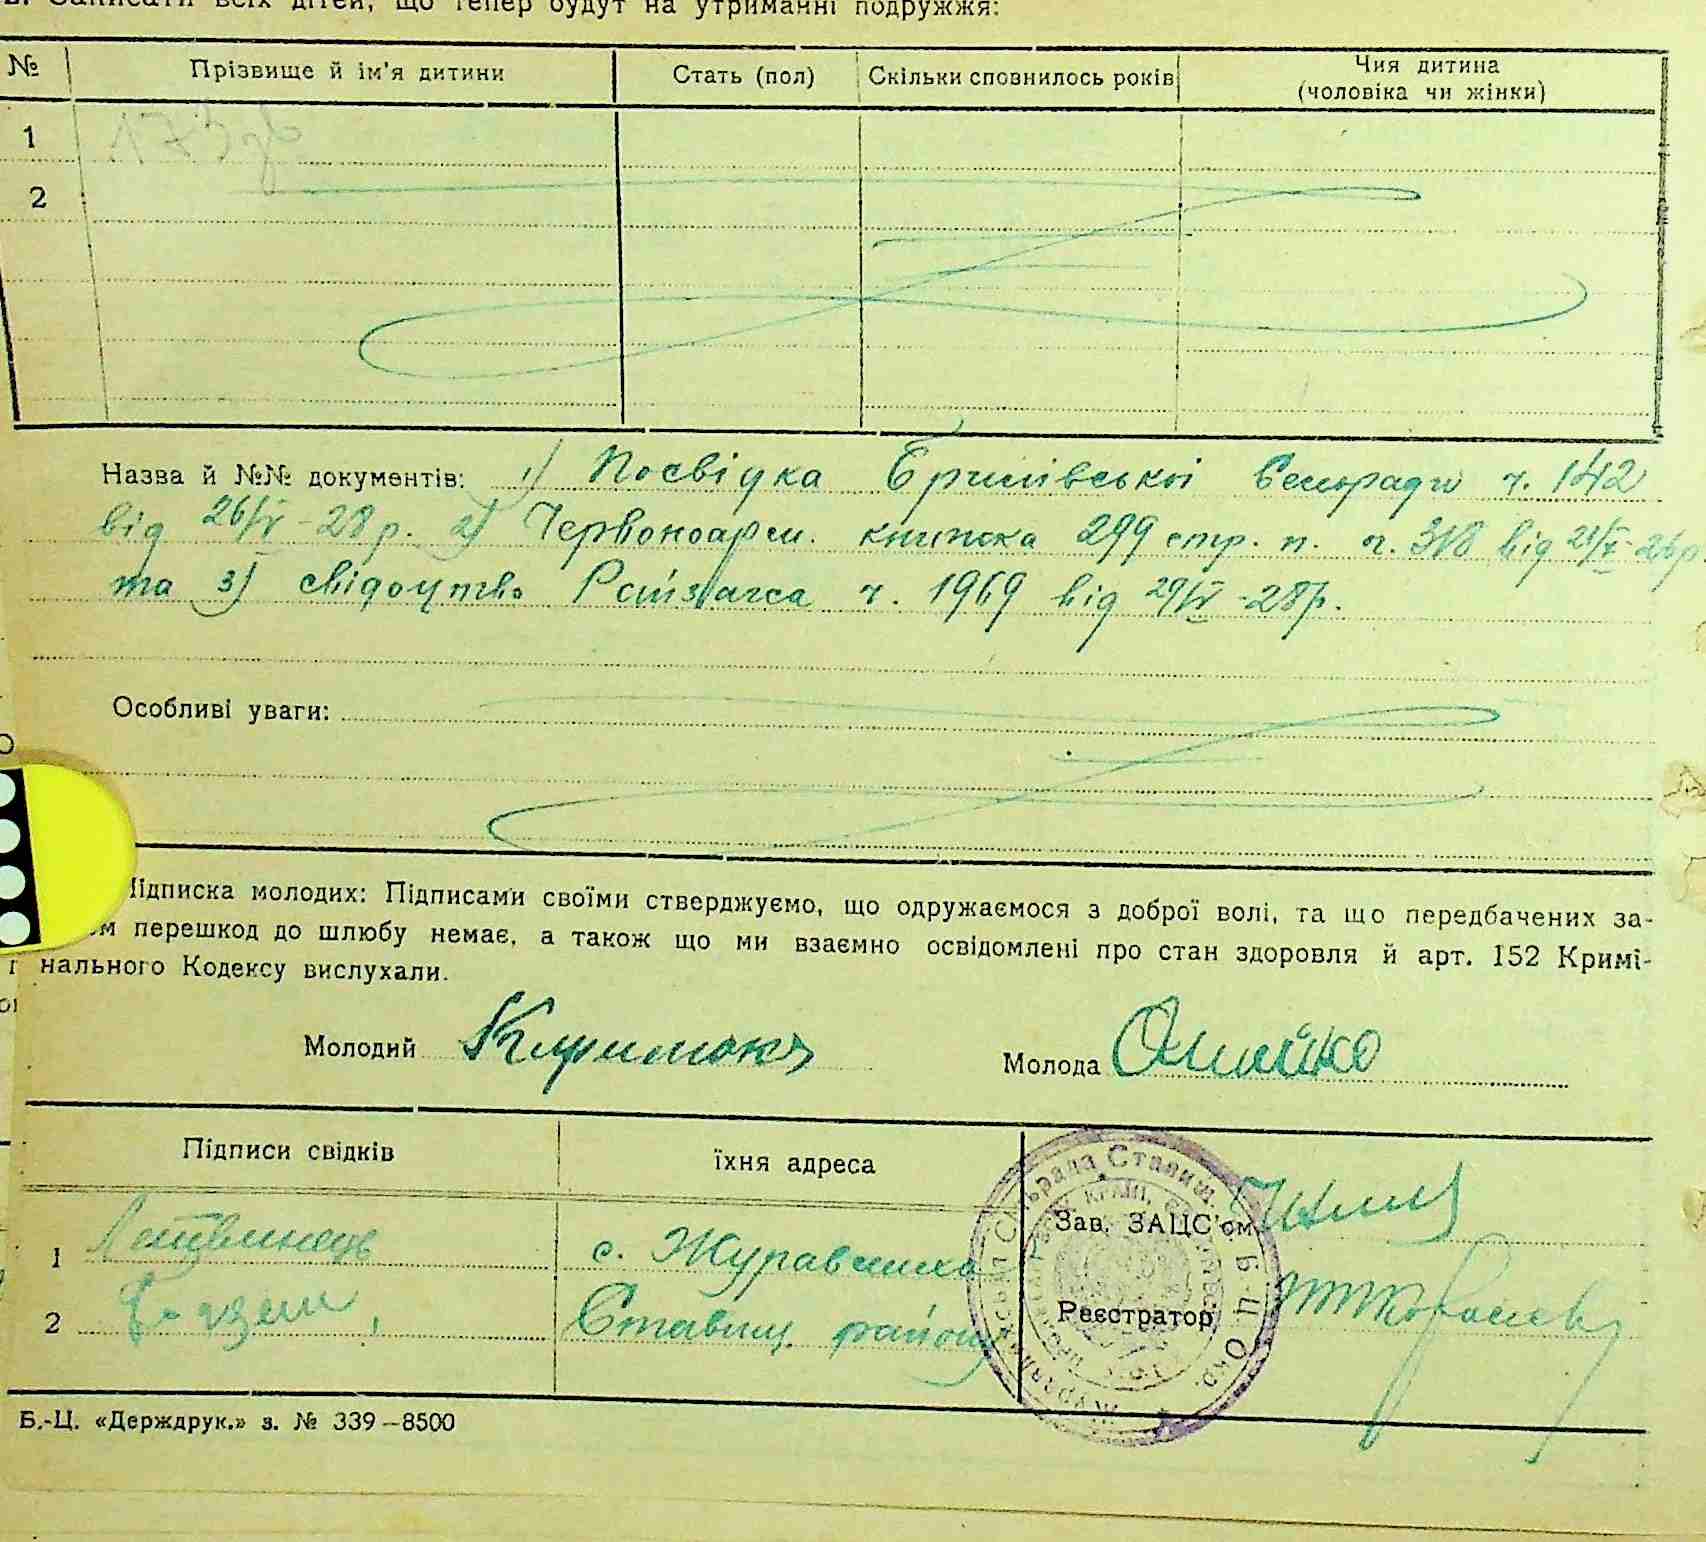 2. Записати всіх дітей, що тепер будут на утриманні подружжя:
№ Прізвище й ім'я дитини Стать (пол) Скільки сповнилось років Чия дитина (чоловіка чи жінки)
1
2
Назва й №№ документів: 1) Посвідка Сельради ч. 142
від 26/IV-28 р. 2) Червоноарм. книжка 299 стр. п. ч. 318 від
та 3) свідоцтво Райзагса ч. 1969 від 29/IV-28р.
Особливі уваги:
Підписка молодих: Підписами своїми стверджуємо, що одружаємося з доброї волі, та що передбачених за-
ом перешкод до шлюбу немає, а також що ми взаємно освідомлені про стан здоровля й арт. 152 Кримі-
нального Кодексу вислухали.
Молодий Молода
Підписи свідків їхня адреса
Зав. ЗАЦС'ом
1 Литвинець с. Журавлиха
2 Ставищ. району Реєстратор
Сільрада Ставищ. Б-Ц Окр.
Б.-Ц. «Держдрук.» з. № 339–8500